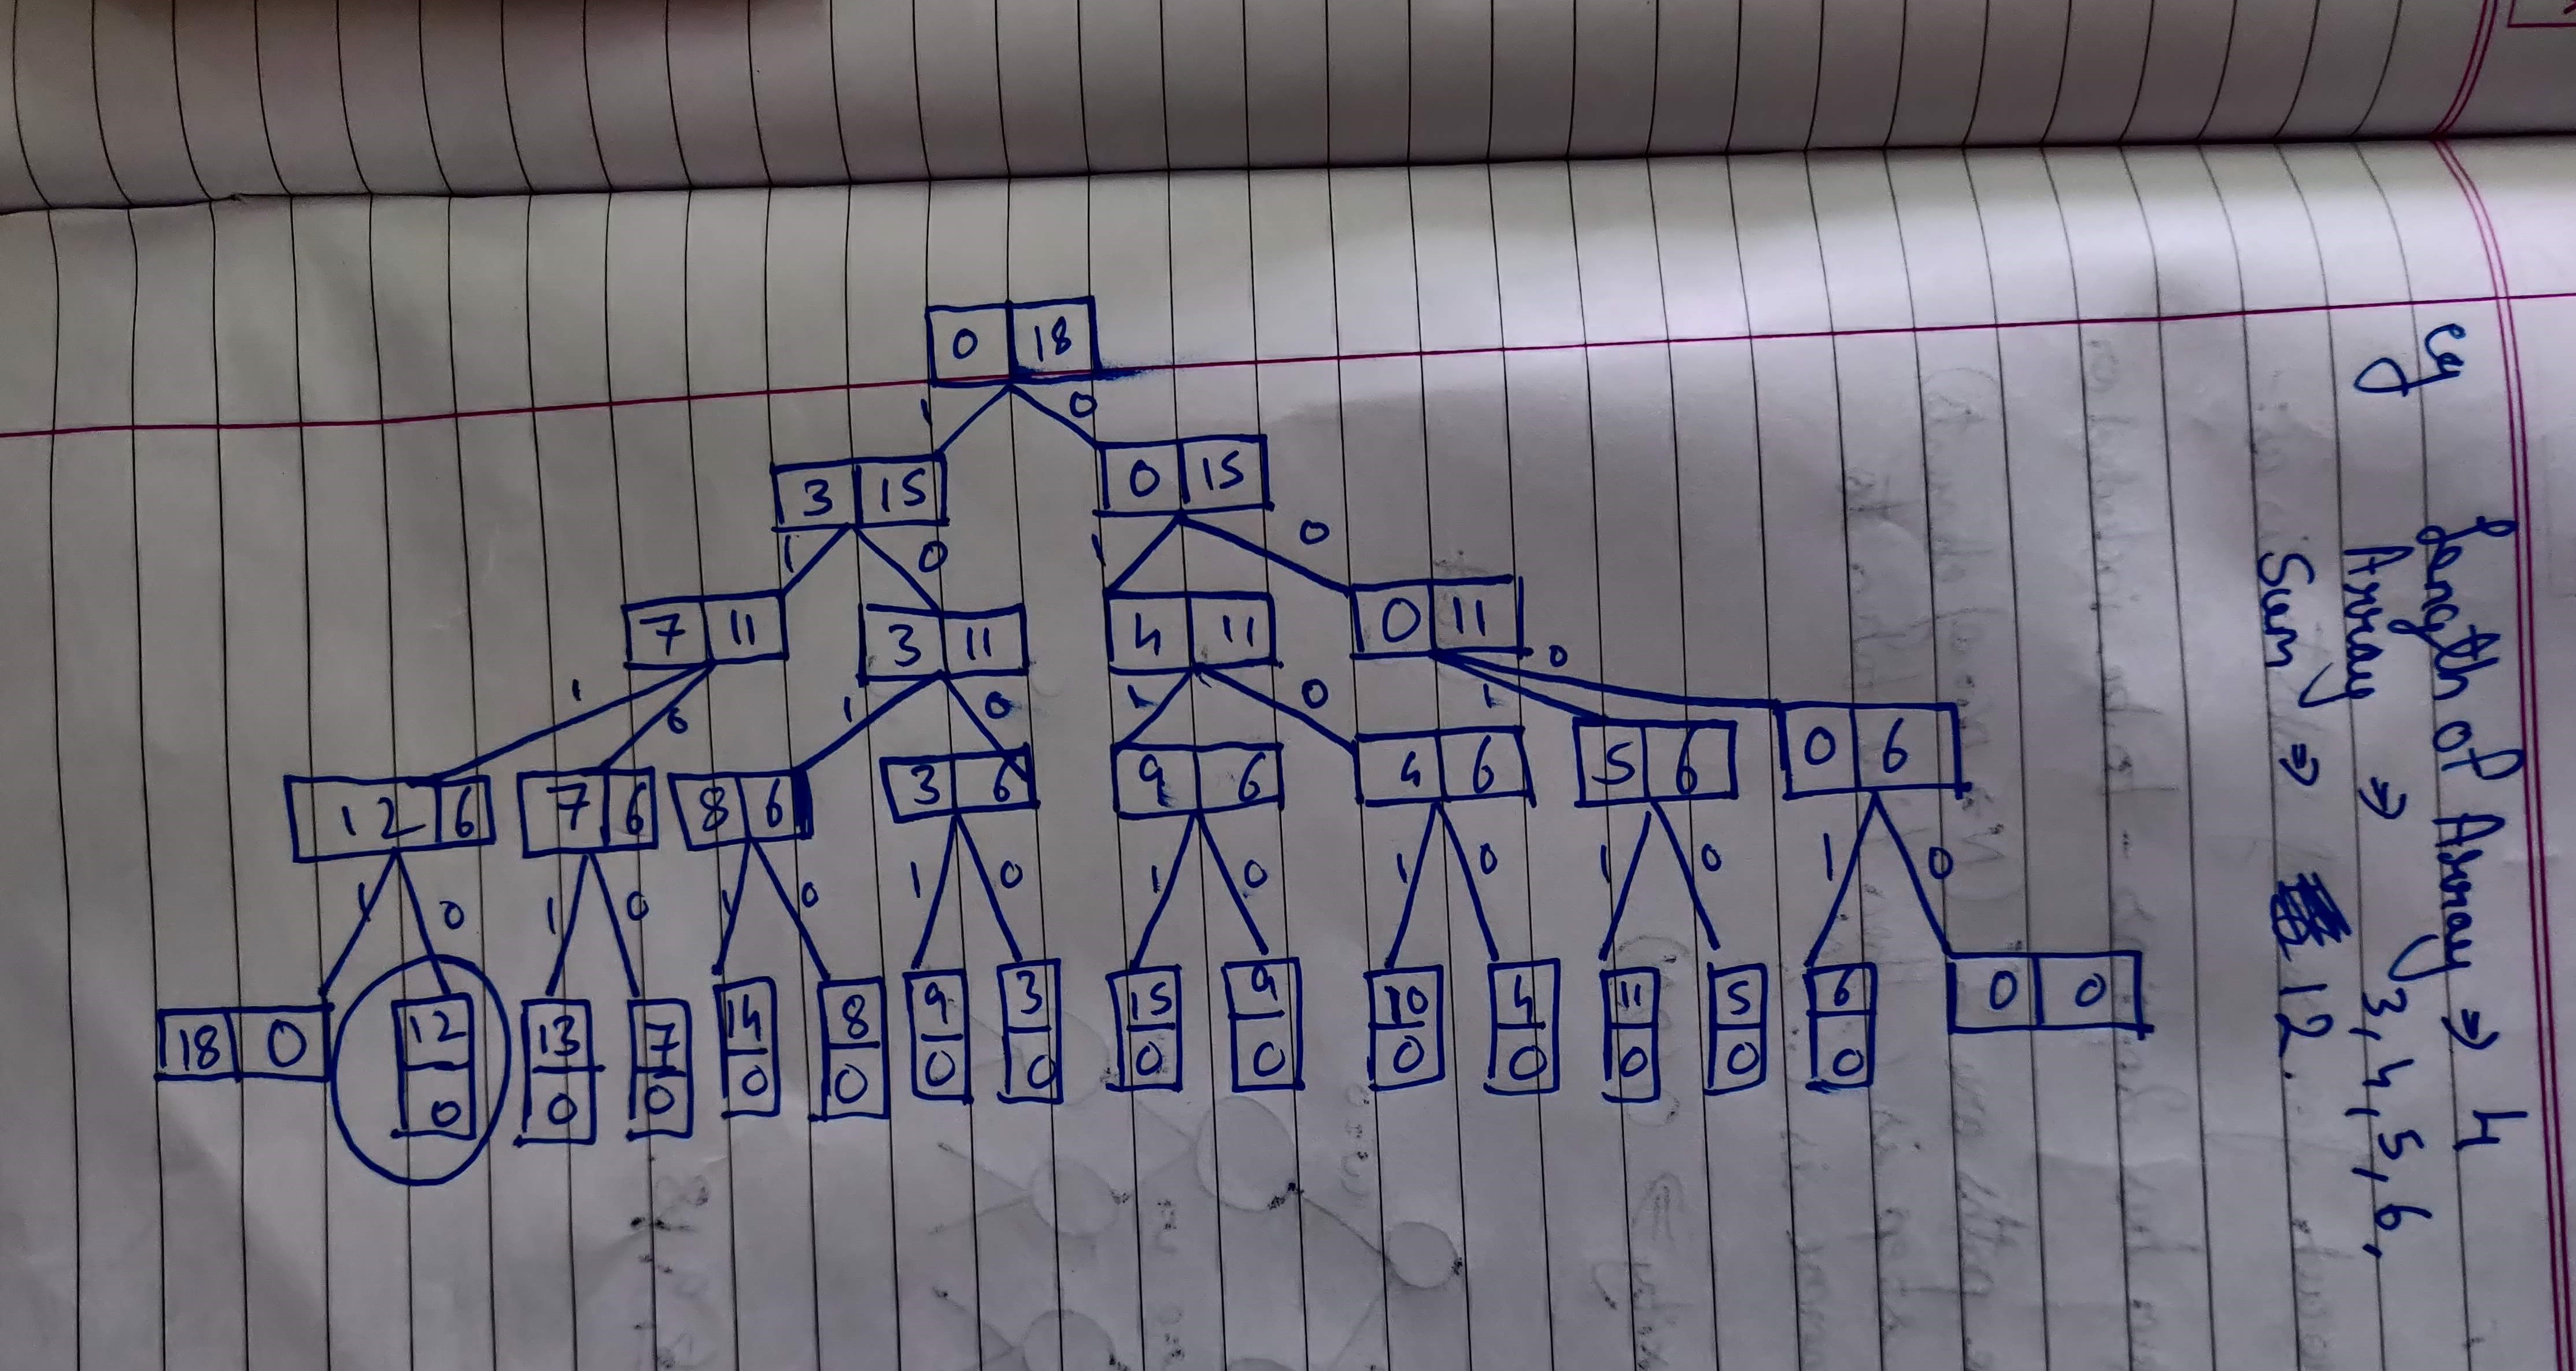 eg
Length of Array ⇒ 4
Array ⇒ 3, 4, 5, 6,
Sum ⇒ 12.
0 18
1 0
3 15 0 15
1 0 1 0
7 11 3 11 4 11 0 11
1 0 1 0 1 0 1 0
12 6 7 6 8 6 3 6 9 6 4 6 5 6 0 6
1 0 1 0 1 0 1 0 1 0 1 0 1 0 1 0
18 0 12 0 13 0 7 0 14 0 8 0 9 0 3 0 15 0 9 0 10 0 4 0 11 0 5 0 6 0 0 0